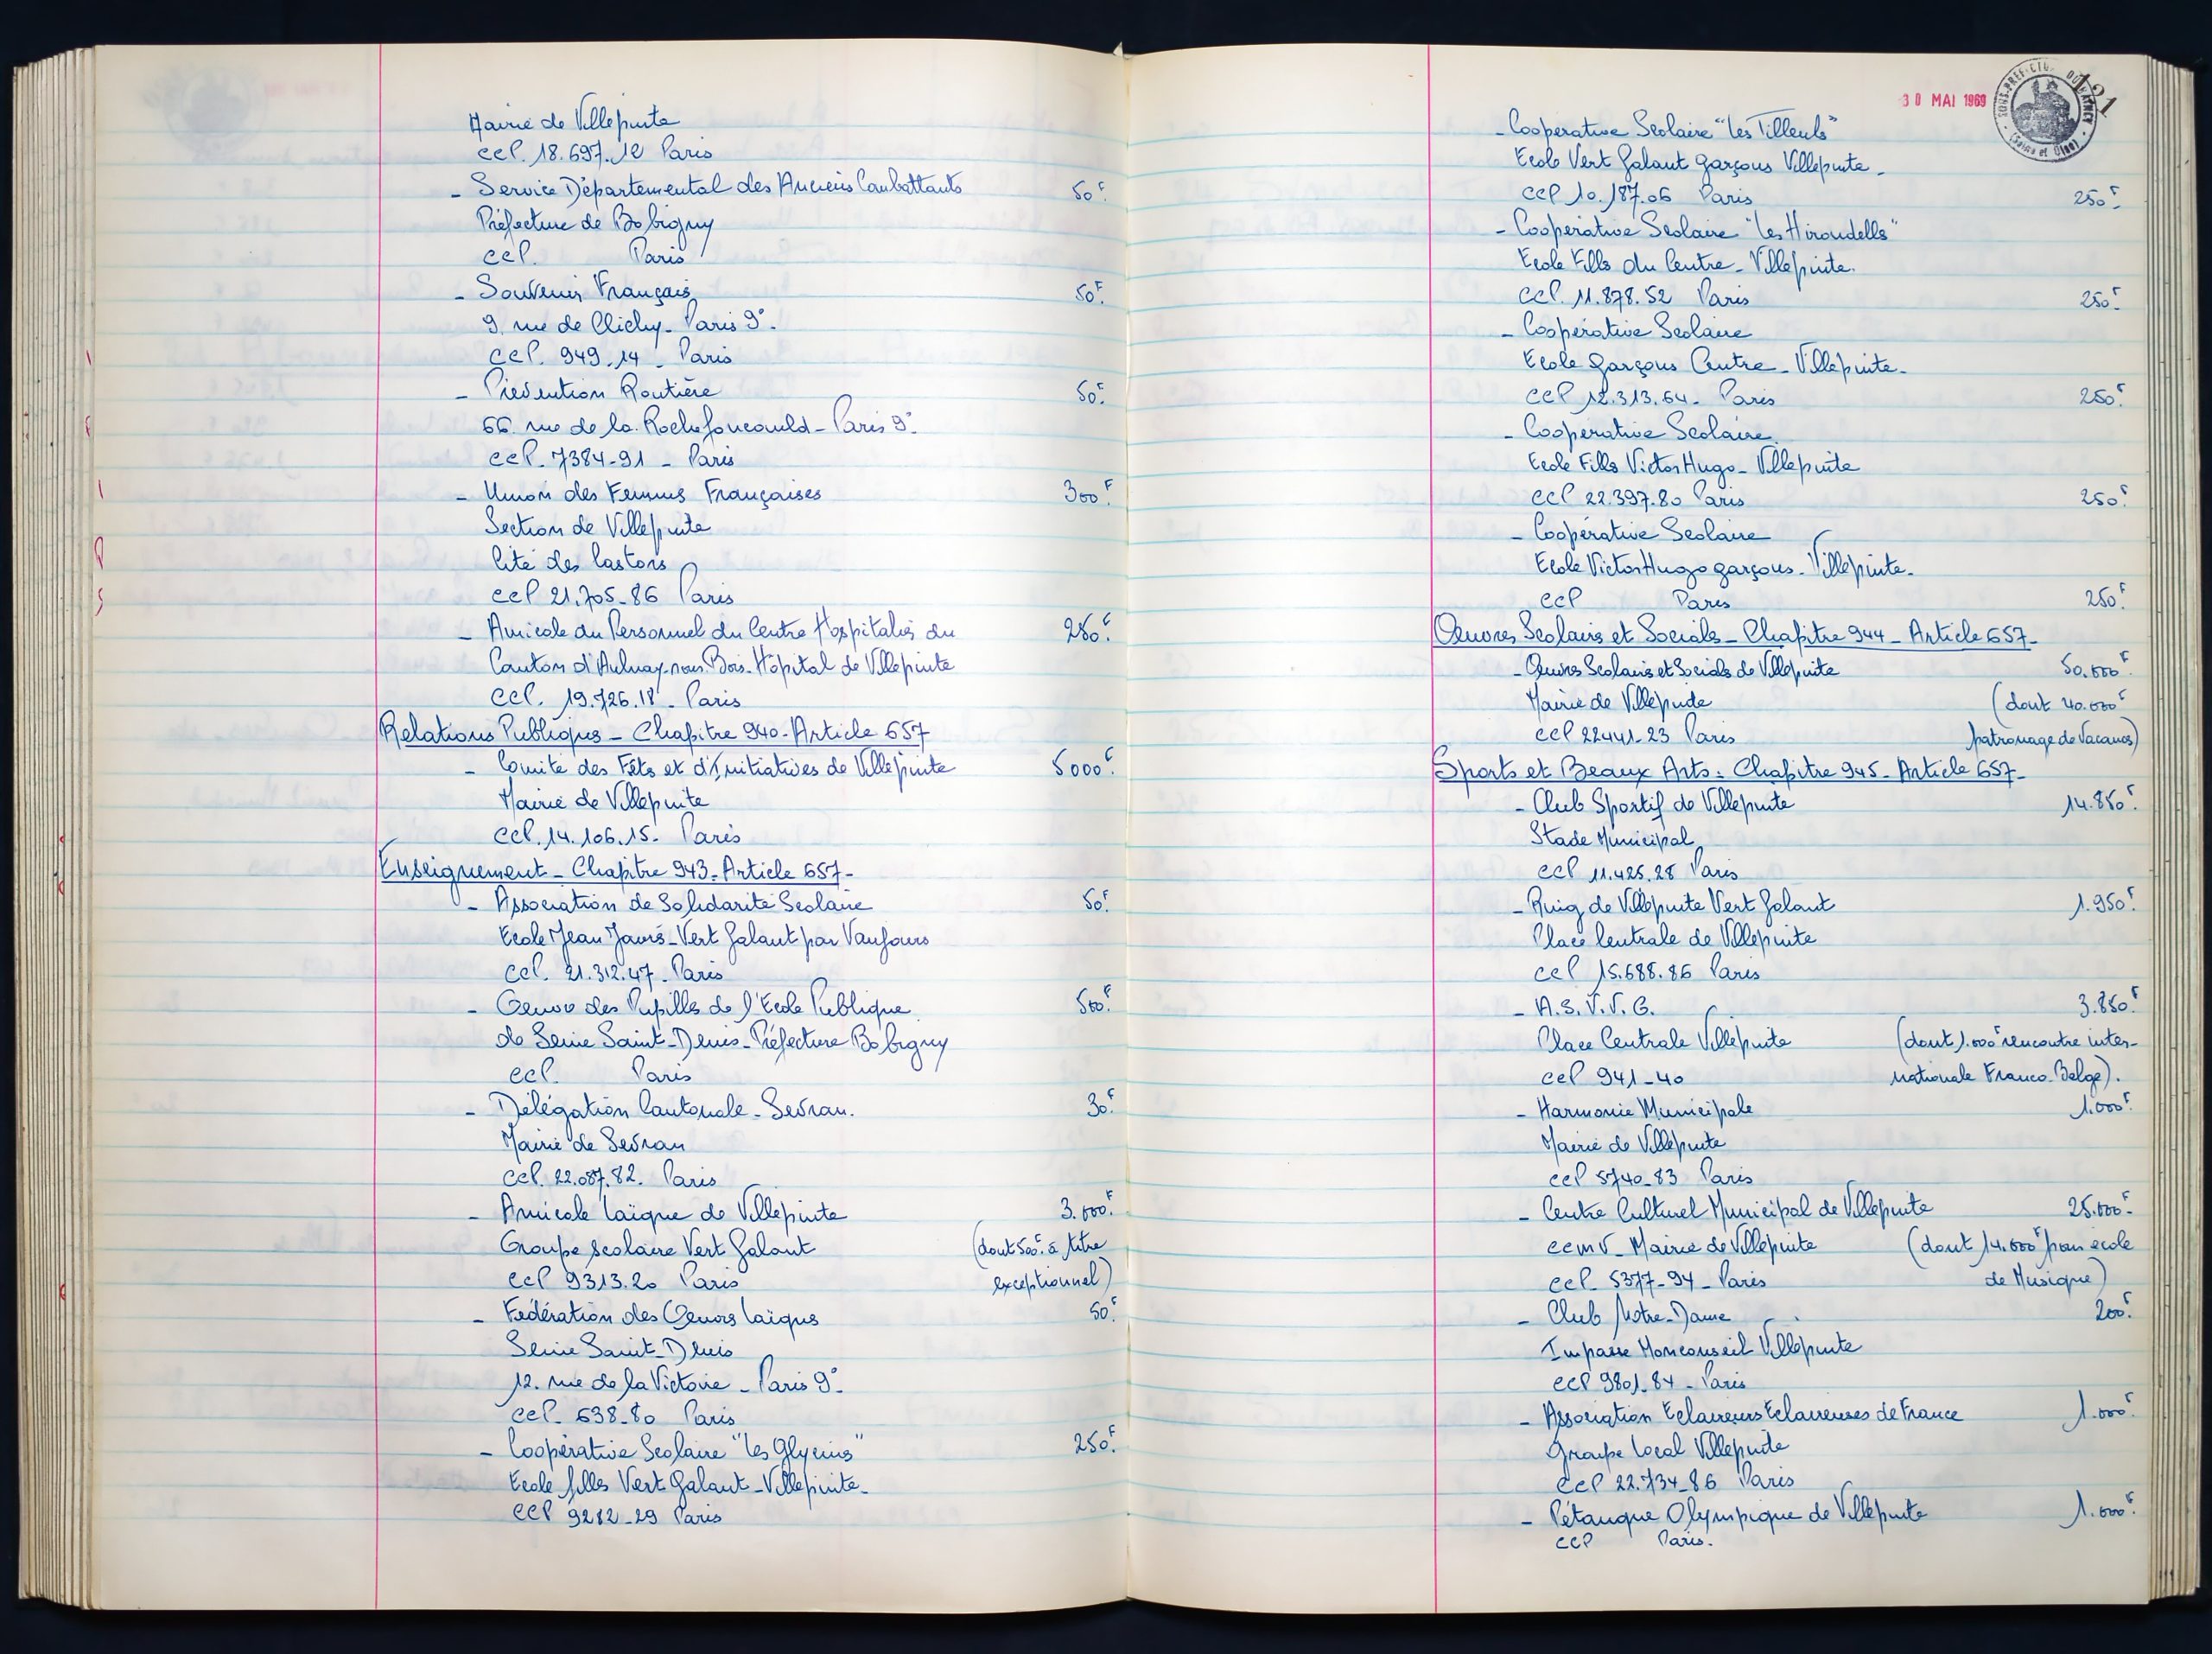 Mairie de Villepinte
CCP. 18.697.12 Paris
- Service Départemental des Anciens Combattants 50F.
Préfecture de Bobigny
CCP. Paris
- Souvenir Français 50F.
9, rue de Clichy - Paris 9°.
CCP. 949.14 - Paris
- Prévention Routière 50F.
66, rue de la Rochefoucauld - Paris 9°.
CCP. 7384-91 - Paris
- Union des Femmes Françaises 300F.
Section de Villepinte
Cité des Castors
CCP 21.705-86 Paris
- Amicale du Personnel du Centre Hospitalier du 250F.
Canton d'Aulnay-sous-Bois - Hôpital de Villepinte
CCP. 19.726.18 - Paris
Relations Publiques - Chapitre 940 - Article 657
- Comité des Fêtes et d'Initiatives de Villepinte 5000F.
Mairie de Villepinte
CCP. 14.106.15 - Paris
Enseignement - Chapitre 943 - Article 657 -
- Association de Solidarité Scolaire 50F.
Ecole Jean Jaurès - Vert Galant par Vaujours
CCP. 21.312.47 - Paris
- Oeuvre des Pupilles de l'Ecole Publique 500F.
de Seine Saint-Denis - Préfecture Bobigny
CCP. Paris
- Délégation Cantonale - Sevran. 30F.
Mairie de Sevran
CCP. 22.087.82. Paris
- Amicale Laïque de Villepinte 3.000F.
Groupe scolaire Vert Galant (dont 500F. à titre
CCP 9313.20 Paris exceptionnel)
- Fédération des Oeuvres Laïques 50F.
Seine Saint-Denis
12, rue de la Victoire - Paris 9°.
CCP. 638-80 Paris
- Coopérative Scolaire "Les Glycines" 250F.
Ecole filles Vert Galant - Villepinte -
CCP 9282-29 Paris
30 MAI 1969
121
SOUS-PREFECTURE DU RAINCY
(Seine et Oise)
- Coopérative Scolaire "Les Tilleuls"
Ecole Vert Galant garçons Villepinte -
CCP 10.187.06 Paris 250F.
- Coopérative Scolaire "Les Hirondelles"
Ecole Filles du Centre - Villepinte.
CCP. 11.878.52 Paris 250F.
- Coopérative Scolaire
Ecole garçons Centre - Villepinte -
CCP 12.313.64 - Paris 250F.
- Coopérative Scolaire
Ecole Filles Victor Hugo - Villepinte
CCP 22.397.80 Paris 250F.
- Coopérative Scolaire
Ecole Victor Hugo garçons - Villepinte -
CCP Paris 250F.
Oeuvres Scolaires et Sociales - Chapitre 944 - Article 657 -
- Oeuvres Scolaires et Sociales de Villepinte 50.000F.
Mairie de Villepinte (dont 40.000F
CCP 22441-23 Paris patronage de Vacances)
Sports et Beaux Arts : Chapitre 945 - Article 657 -
- Club Sportif de Villepinte 14.850F.
Stade Municipal
CCP 11.425.28 Paris
- Ring de Villepinte Vert Galant 1.950F.
Place Centrale de Villepinte
CCP 15.688.86 Paris
- A.S.V.V.G. 3.850F.
Place Centrale Villepinte (dont 1.000F rencontre inter-
CCP 941-40 nationale Franco-Belge).
- Harmonie Municipale 1.000F.
Mairie de Villepinte
CCP 5740-83 Paris
- Centre Culturel Municipal de Villepinte 25.000F.
CCMV - Mairie de Villepinte (dont 14.000F pour école
CCP. 5377-94 - Paris de Musique)
- Club Notre-Dame 200F.
Impasse Monconseil Villepinte
CCP 9801-84 - Paris
- Association Eclaireurs Eclaireuses de France 1.000F.
Groupe Local Villepinte
CCP 22.734-86 Paris
- Pétanque Olympique de Villepinte 1.000F.
CCP Paris.